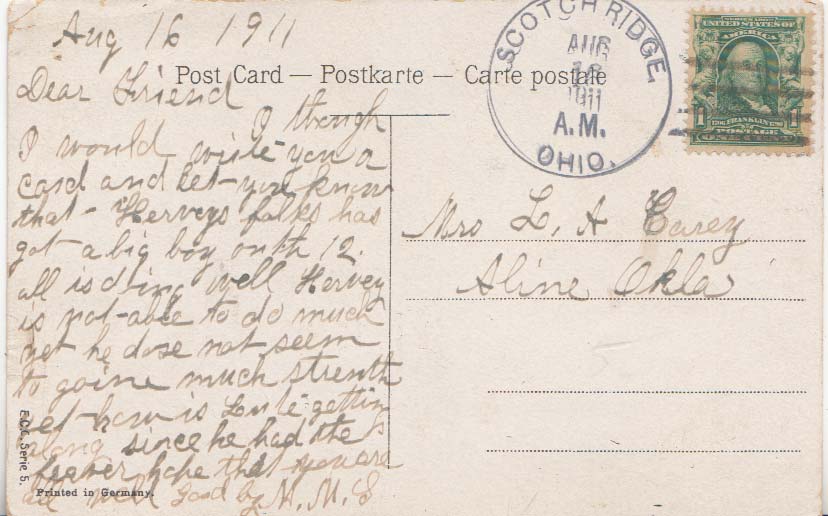 Aug 16 1911
Post Card — Postkarte — Carte postale
Dear Friend
I though
I would write you a
card and let you know
that Herveys folks has
got a big boy on th 12.
all is doing well Hervey
is not able to do much
yet he dose not seem
to goine much strenth
yet how is getting
along since he had the
feever hope that you are
all well good by M. M. E
E.C.C. Serie 5.
Printed in Germany.
SCOTCH RIDGE,
AUG
16
1911
A.M.
OHIO.
SERIES 1902
UNITED STATES OF
AMERICA
1 1
FRANKLIN
POSTAGE
ONE CENT
Mrs L. A Carey
Aline Okla